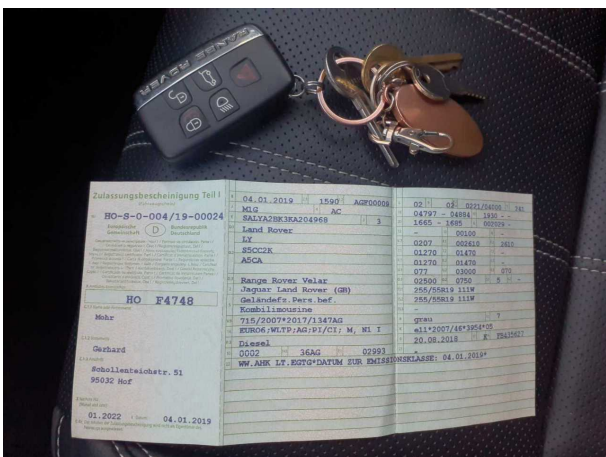 RANGE ROVER
Zulassungsbescheinigung Teil I
HO-S-0-004/19-00024
Europäische Gemeinschaft D Bundesrepublik Deutschland
HO F4748
Mohr
Gerhard
Schollenteichstr. 51
95032 Hof
01.2022 04.01.2019
04.01.2019 1590 AGF00008
M1G AC
SALYA2BK3KA204968 3
Land Rover
LY
S5CC2K
A5CA
Range Rover Velar
Jaguar Land Rover (GB)
Geländefz.Pers.bef.
Kombilimousine
715/2007*2017/1347AG
EURO6;WLTP;AG;PI/CI; M, N1 I
Diesel
0002 36AG 02993
WW.AHK LT.EGTG*DATUM ZUR EMISSIONSKLASSE: 04.01.2019*
02 02 0221/04000 240
04797 - 04884 1930 - -
1665 - 1685 002029 -
- 00100 - -
0207 002610 2610
01270 01470 -
01270 01470 -
077 03000 070
02500 0750 5 -
255/55R19 111W
255/55R19 111W
-
grau 7
e11*2007/46*3954*05
20.08.2018 K